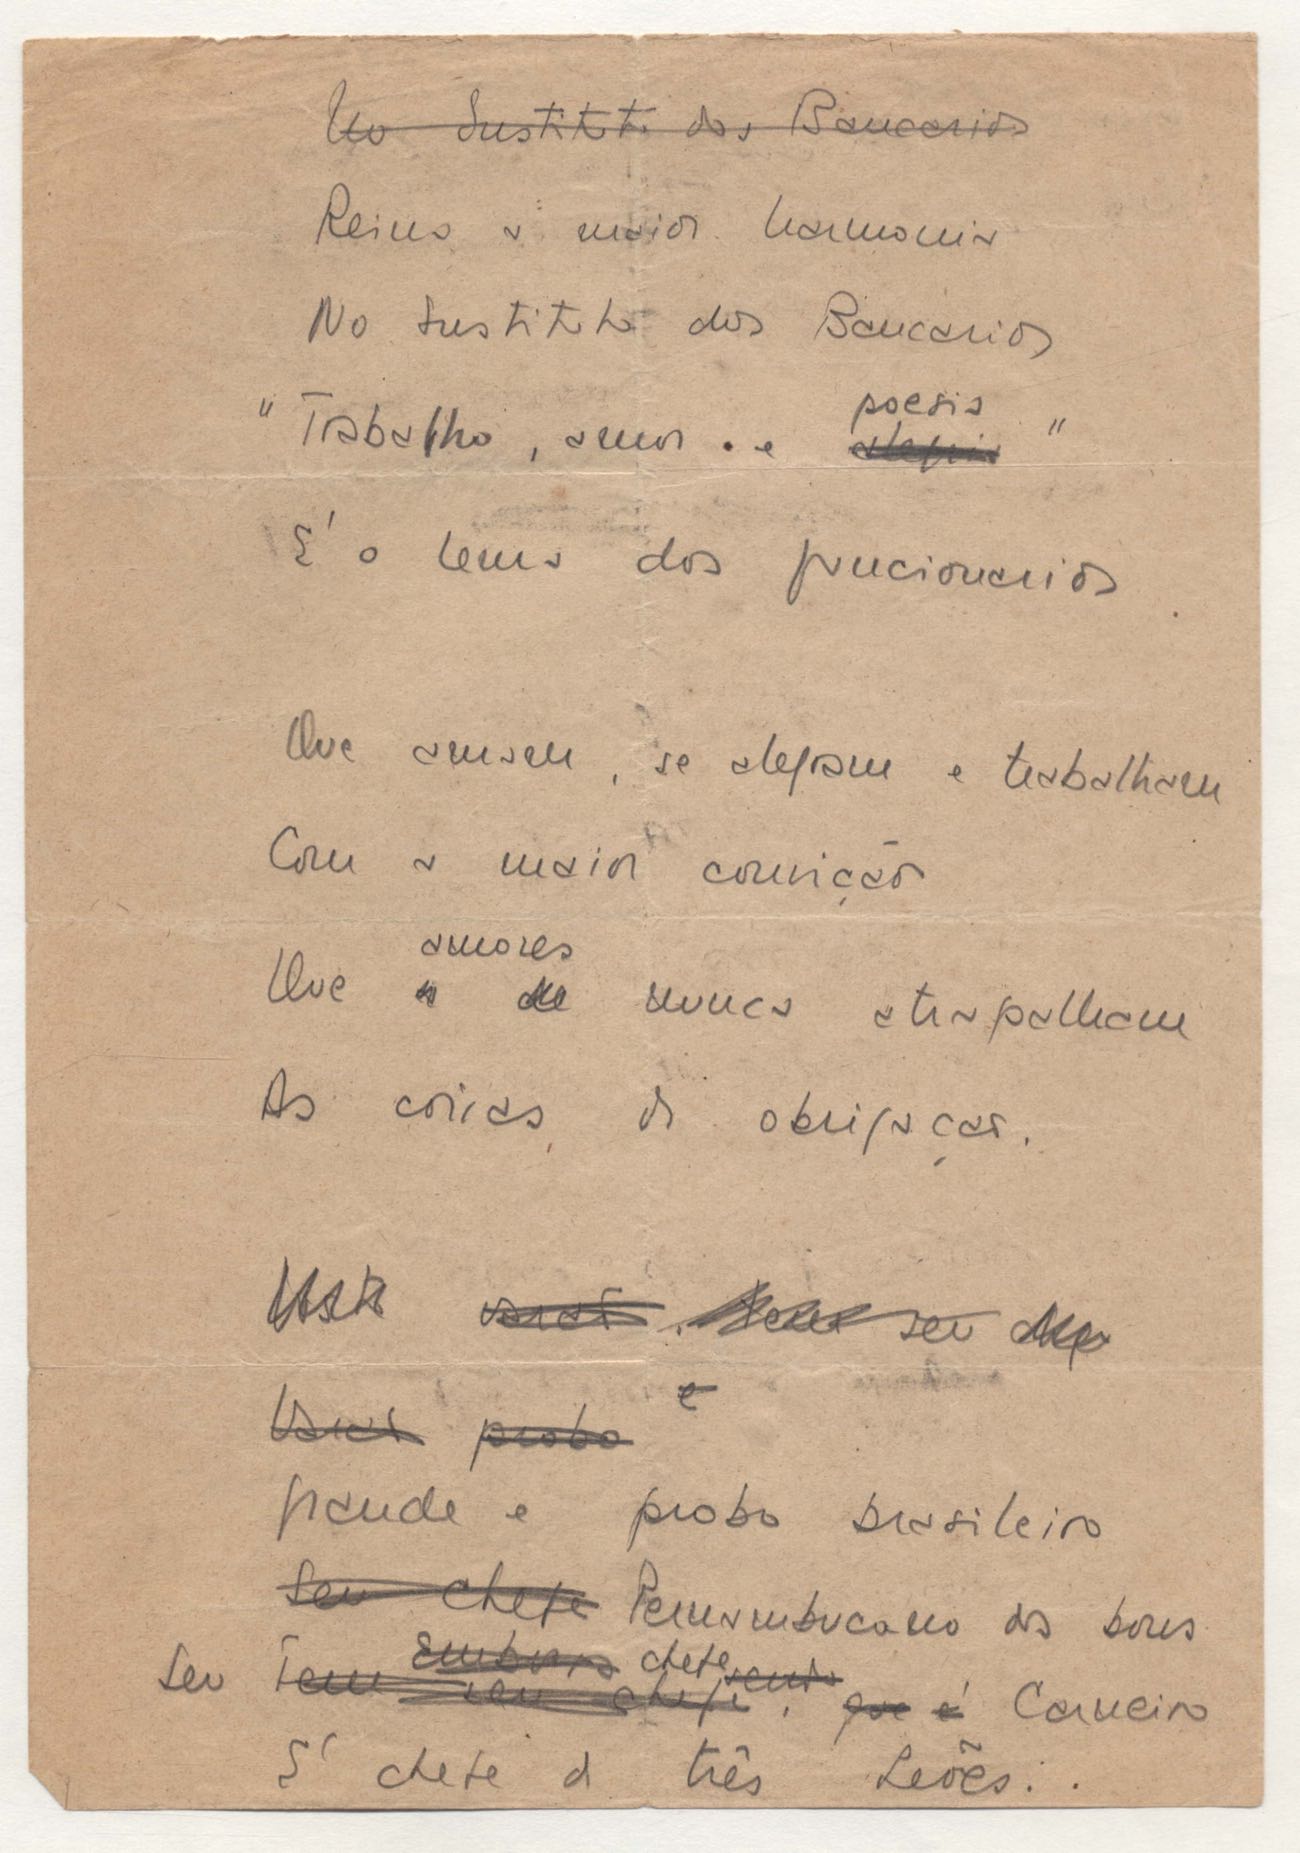 No Instituto dos Bancarios
Reina a maior harmonia
No Instituto dos Bancarios
poesia
"Trabalho, amor . e alegria"
E' o lema dos funcionarios
Que amam, se alegram e trabalham
Com a maior convicção
amores
Que nunca atrapalham
As coisas da obrigação.
seu
e
probo
grande e probo brasileiro
Seu chefe Pernambucano dos bons
Embora chefe sendo
Seu Tem seu chefe, que é Carneiro
E' chefe de três Leões..